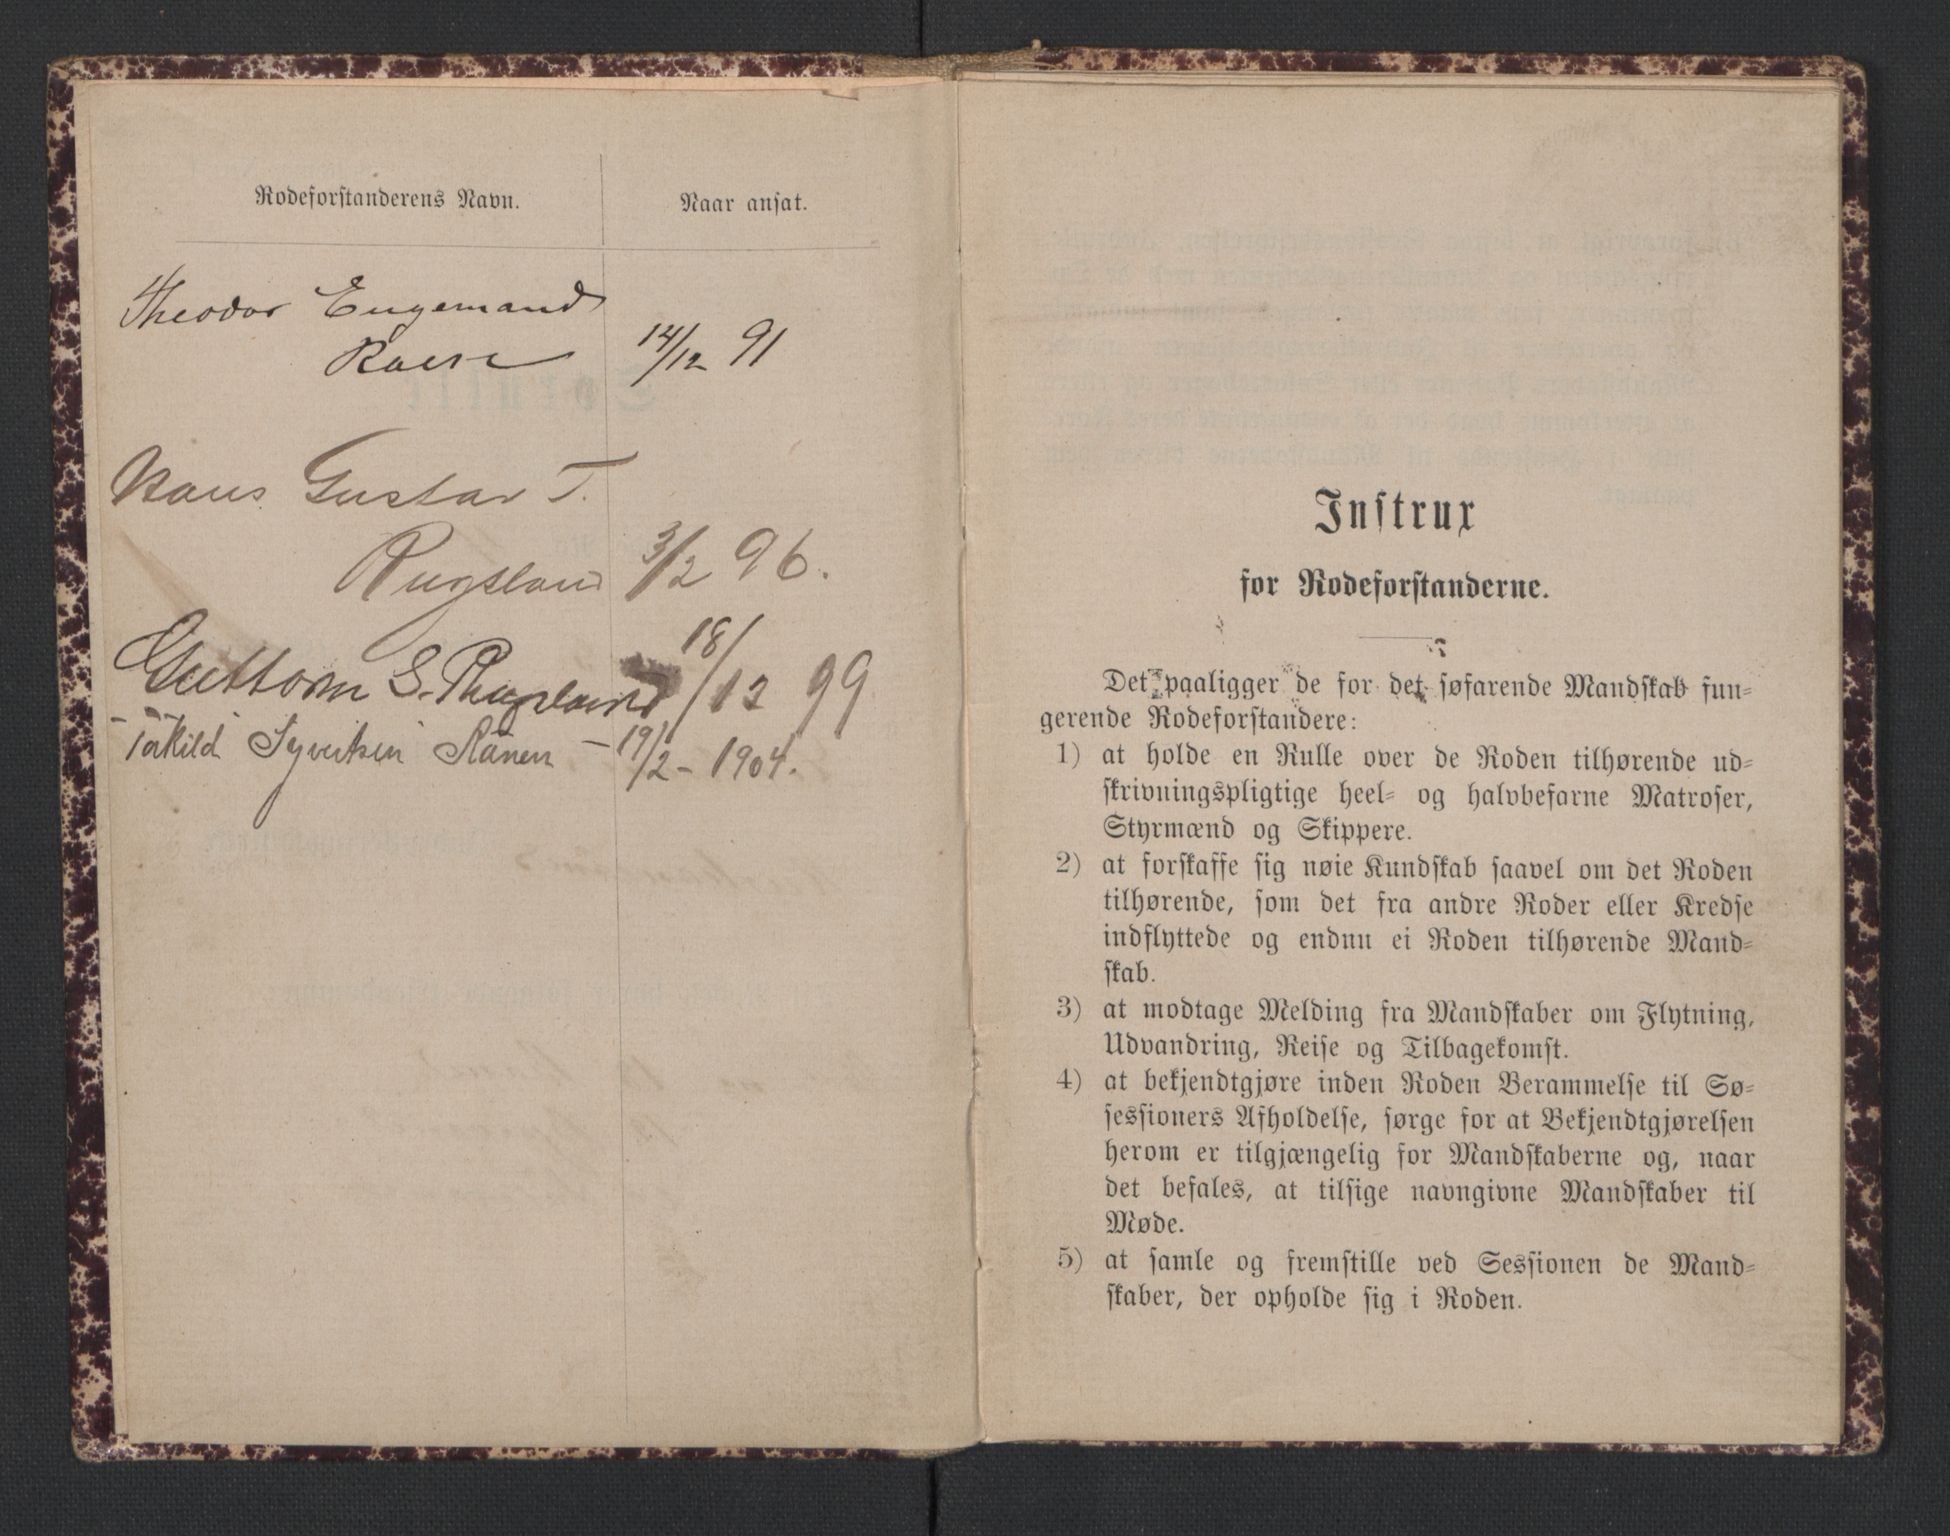 Rodeforstanderens Navn.
Naar ansat.
Theodor Engemand
14/12 91
Hans Gustav T.
Rugsland 3/2 96.
Guttorm S. Rugsland 18/12 99
Tarkild Syvertsen - 19/2 - 1904.
Instrux
for Rodeforstanderne.
Det paaligger de for det søfarende Mandskab fun-
gerende Rodeforstandere:
1) at holde en Rulle over de Roden tilhørende ud-
skrivningspligtige heel- og halvbefarne Matroser,
Styrmænd og Skippere.
2) at forskaffe sig nøie Kundskab saavel om det Roden
tilhørende, som det fra andre Roder eller Kredse
indflyttede og endnu ei Roden tilhørende Mand-
skab.
3) at modtage Melding fra Mandskaber om Flytning,
Udvandring, Reise og Tilbagekomst.
4) at bekjendtgjøre inden Roden Berammelse til Sø-
sessioners Afholdelse, sørge for at Bekjendtgjørelsen
herom er tilgjængelig for Mandskaberne og, naar
det befales, at tilsige navngivne Mandskaber til
Møde.
5) at samle og fremstille ved Sessionen de Mand-
skaber, der opholde sig i Roden.